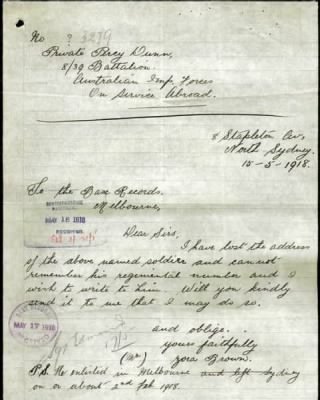 No ? 3239
Private Percy Dunn,
8/39 Battalion.
Australian Imp. Forces
On Service Abroad.
8 Stapleton Av.
North Sydney.
15-5-1918.
To the Base Records.
Melbourne,
Dear Sirs,
I have lost the address
of the above named soldier and cannot
remember his regimental number and I
wish to write to him Will you kindly
send it to me that I may do so.
and oblige.
yours faithfully
(Mr) Zora Brown.
P.S. He enlisted in Melbourne and left Sydney
on or about 2nd Feb 1918.
MAY 17 1918